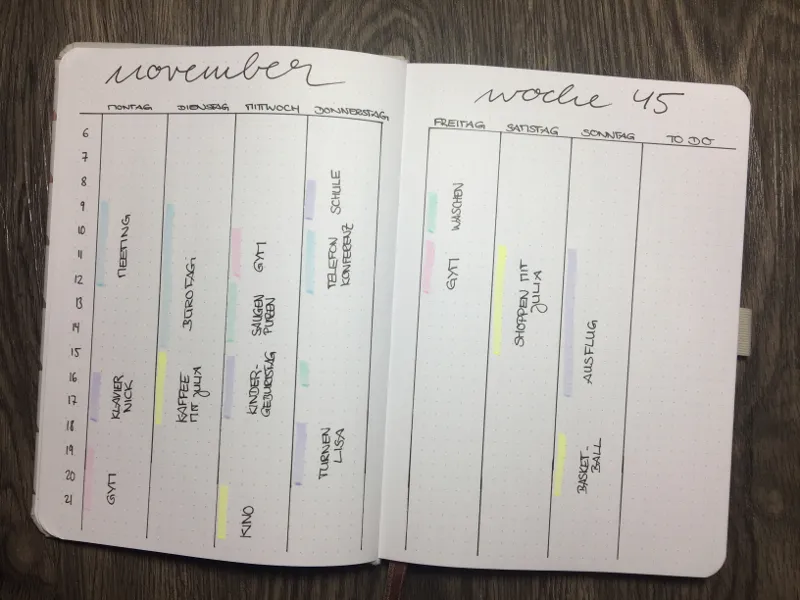 november
woche 45
MONTAG DIENSTAG MITTWOCH DONNERSTAG
FREITAG SAMSTAG SONNTAG TO DO
6
7
8
9
10
11
12
13
14
15
16
17
18
19
20
21
MEETING
KLAVIER
NICK
GYM
BÜROTAG
KAFFEE
MIT JULIA
GYM
SAUGEN
PUTZEN
KINDER-
GEBURTSTAG
KINO
SCHULE
TELEFON
KONFERENZ
TURNEN
LISA
WASCHEN
GYM
SHOPPEN MIT
JULIA
AUSFLUG
BASKET-
BALL